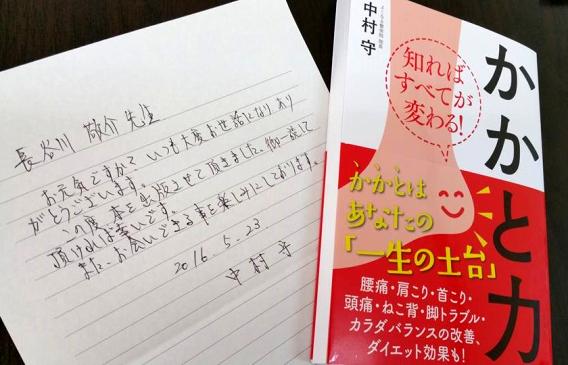 長谷川 敬介 先生
お元気ですか?いつも大変お世話になりあり
がとうございます。
この度本を出版させて頂きました。御一読して
頂ければ幸いです。
また、お会いできる事を楽しみにしております。
2016.5.23
中村 守
中村 守
かかと力
知れば
すべてが
変わる!
かかとは
あなたの
「一生の土台」
腰痛・肩こり・首こり・
頭痛・ねこ背・脚トラブル・
カラダバランスの改善、
ダイエット効果も!